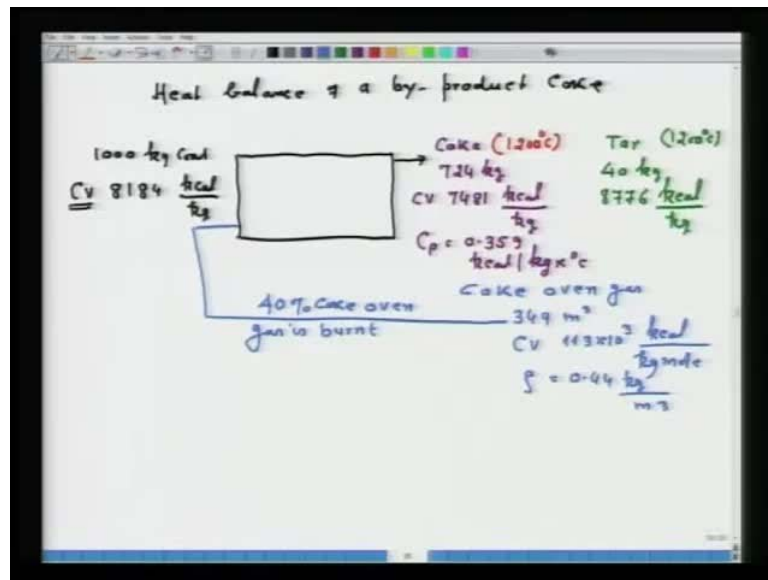 Heat balance of a by-product Coke
1000 kg Coal
CV 8184 kcal/kg
Coke (1200°C)
724 kg
CV 7481 kcal/kg
Cp = 0.359 kcal/kg×°C
Tar (1200°C)
40 kg
8776 kcal/kg
Coke oven gas
349 m³
CV 113×10³ kcal/kg mole
ρ = 0.44 kg/m3
40% Coke oven
gas is burnt